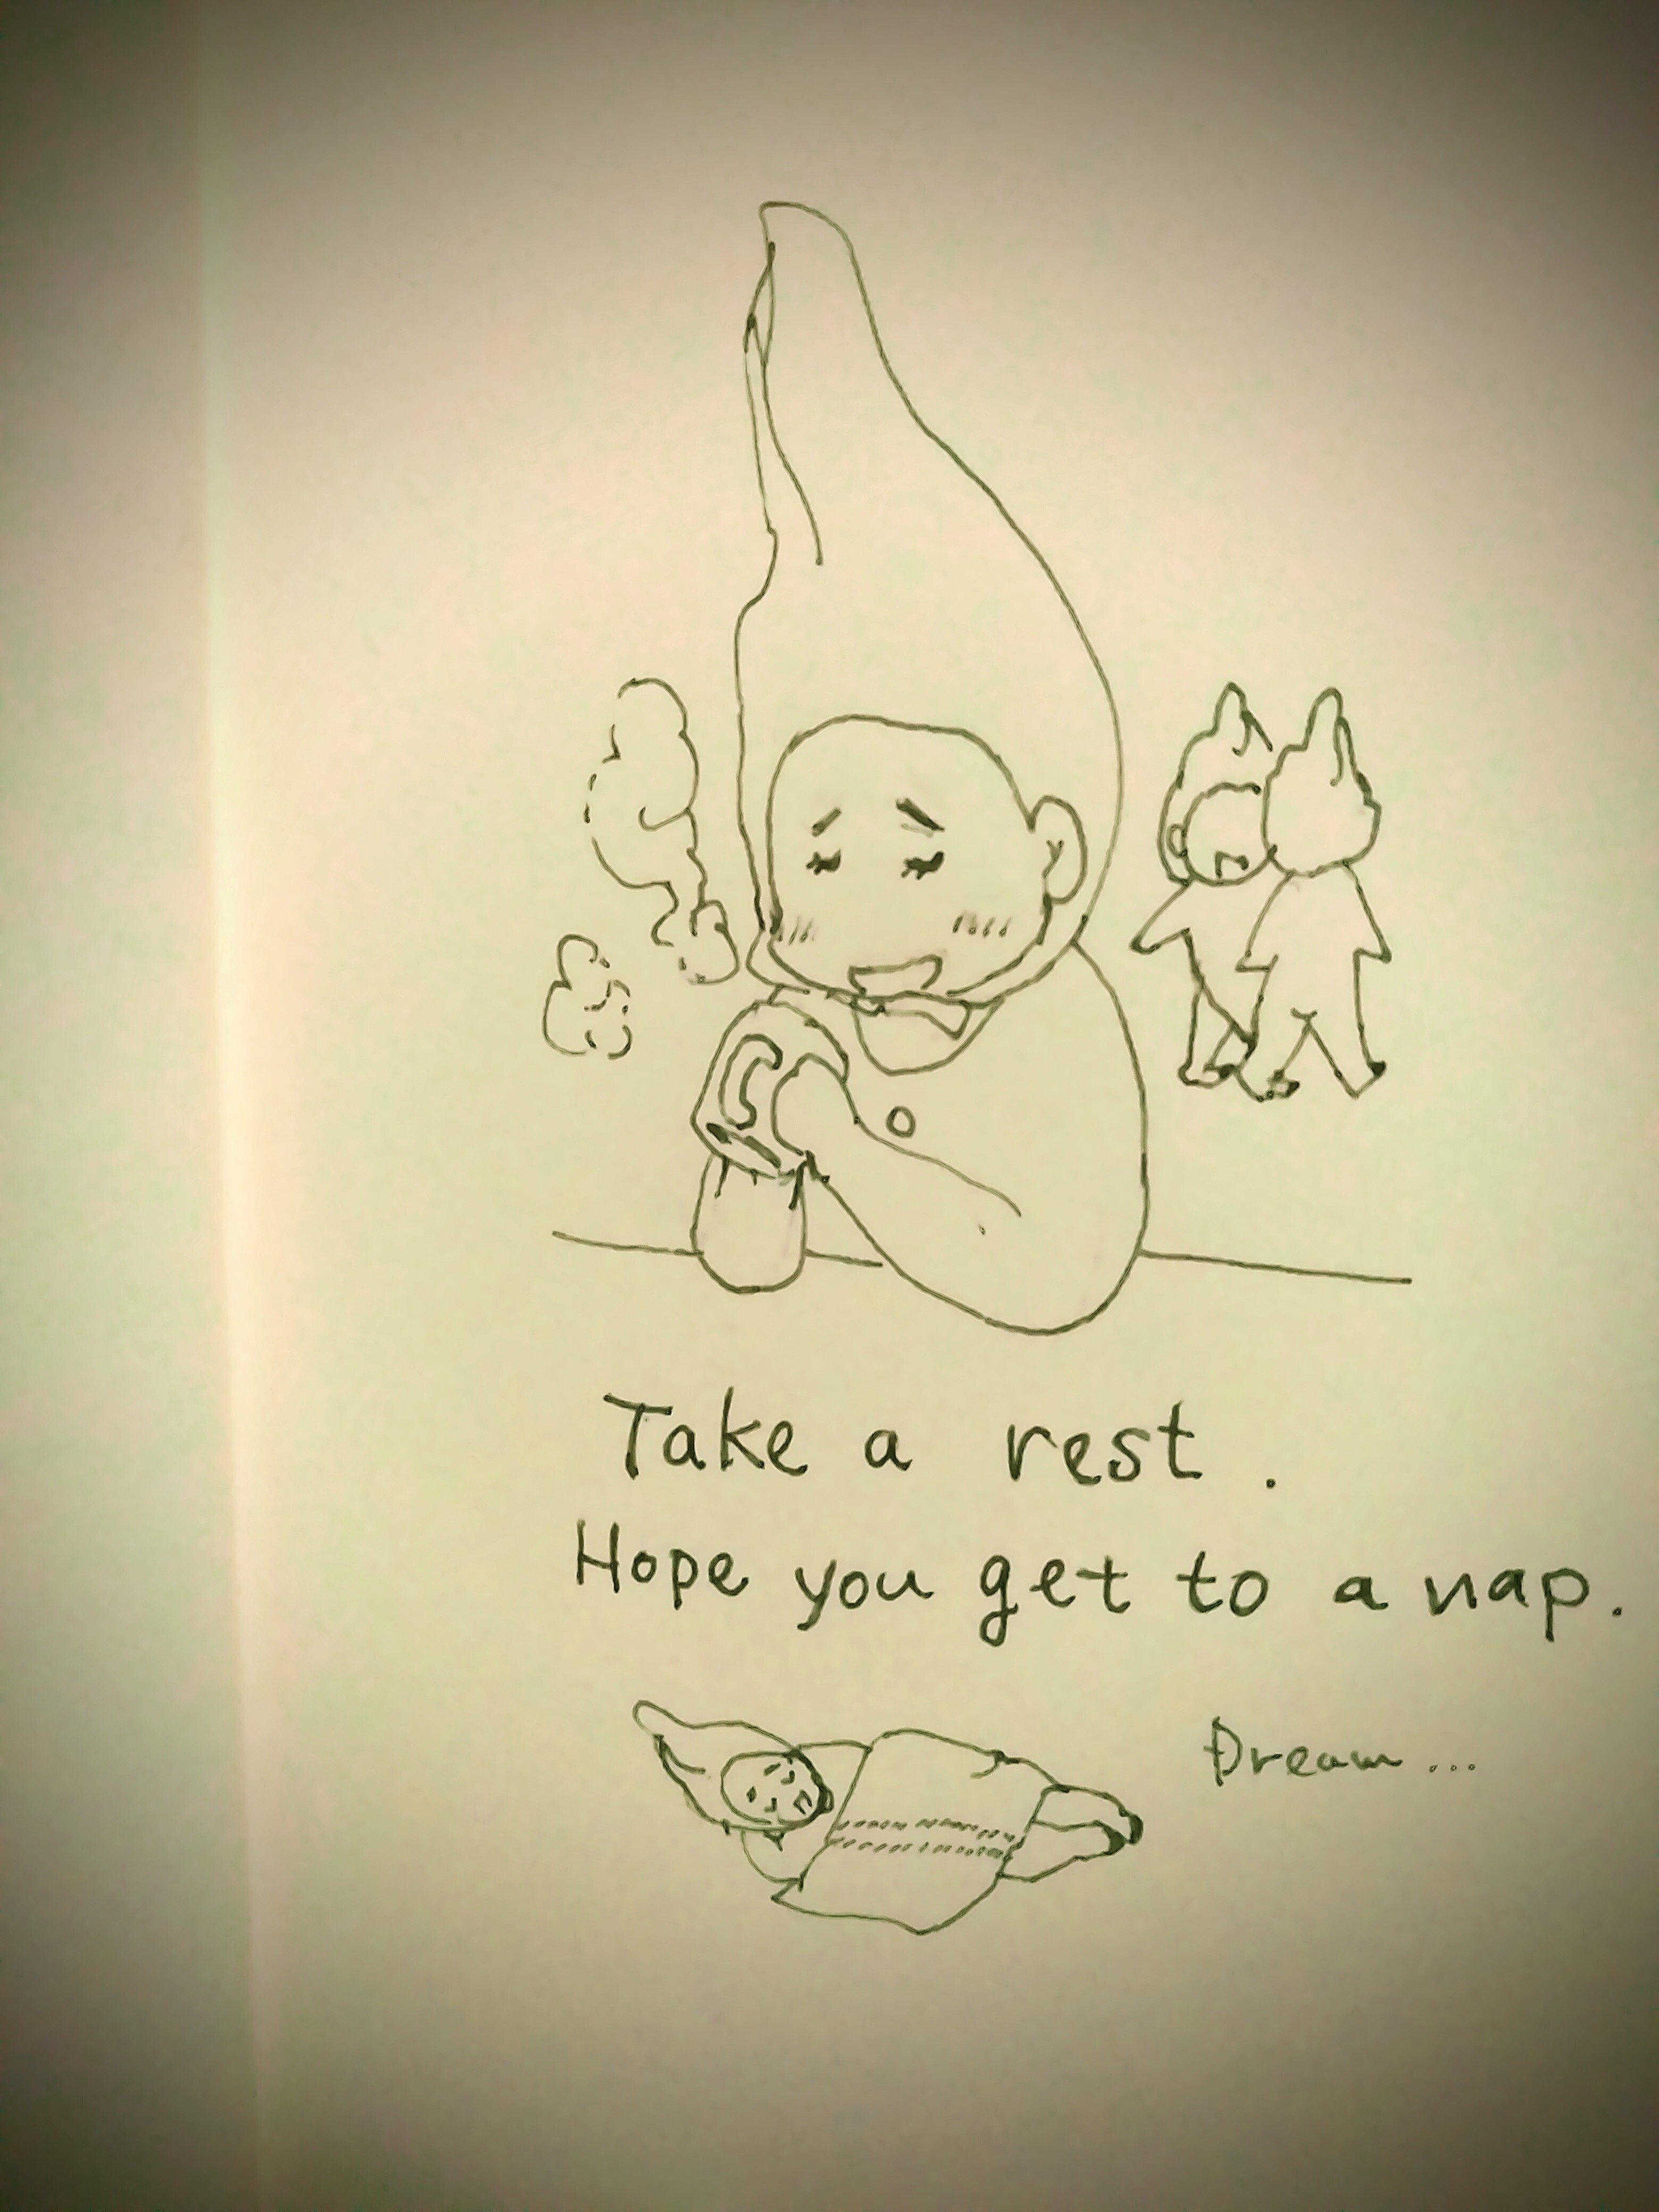 Take a rest.
Hope you get to a nap.
Dream...